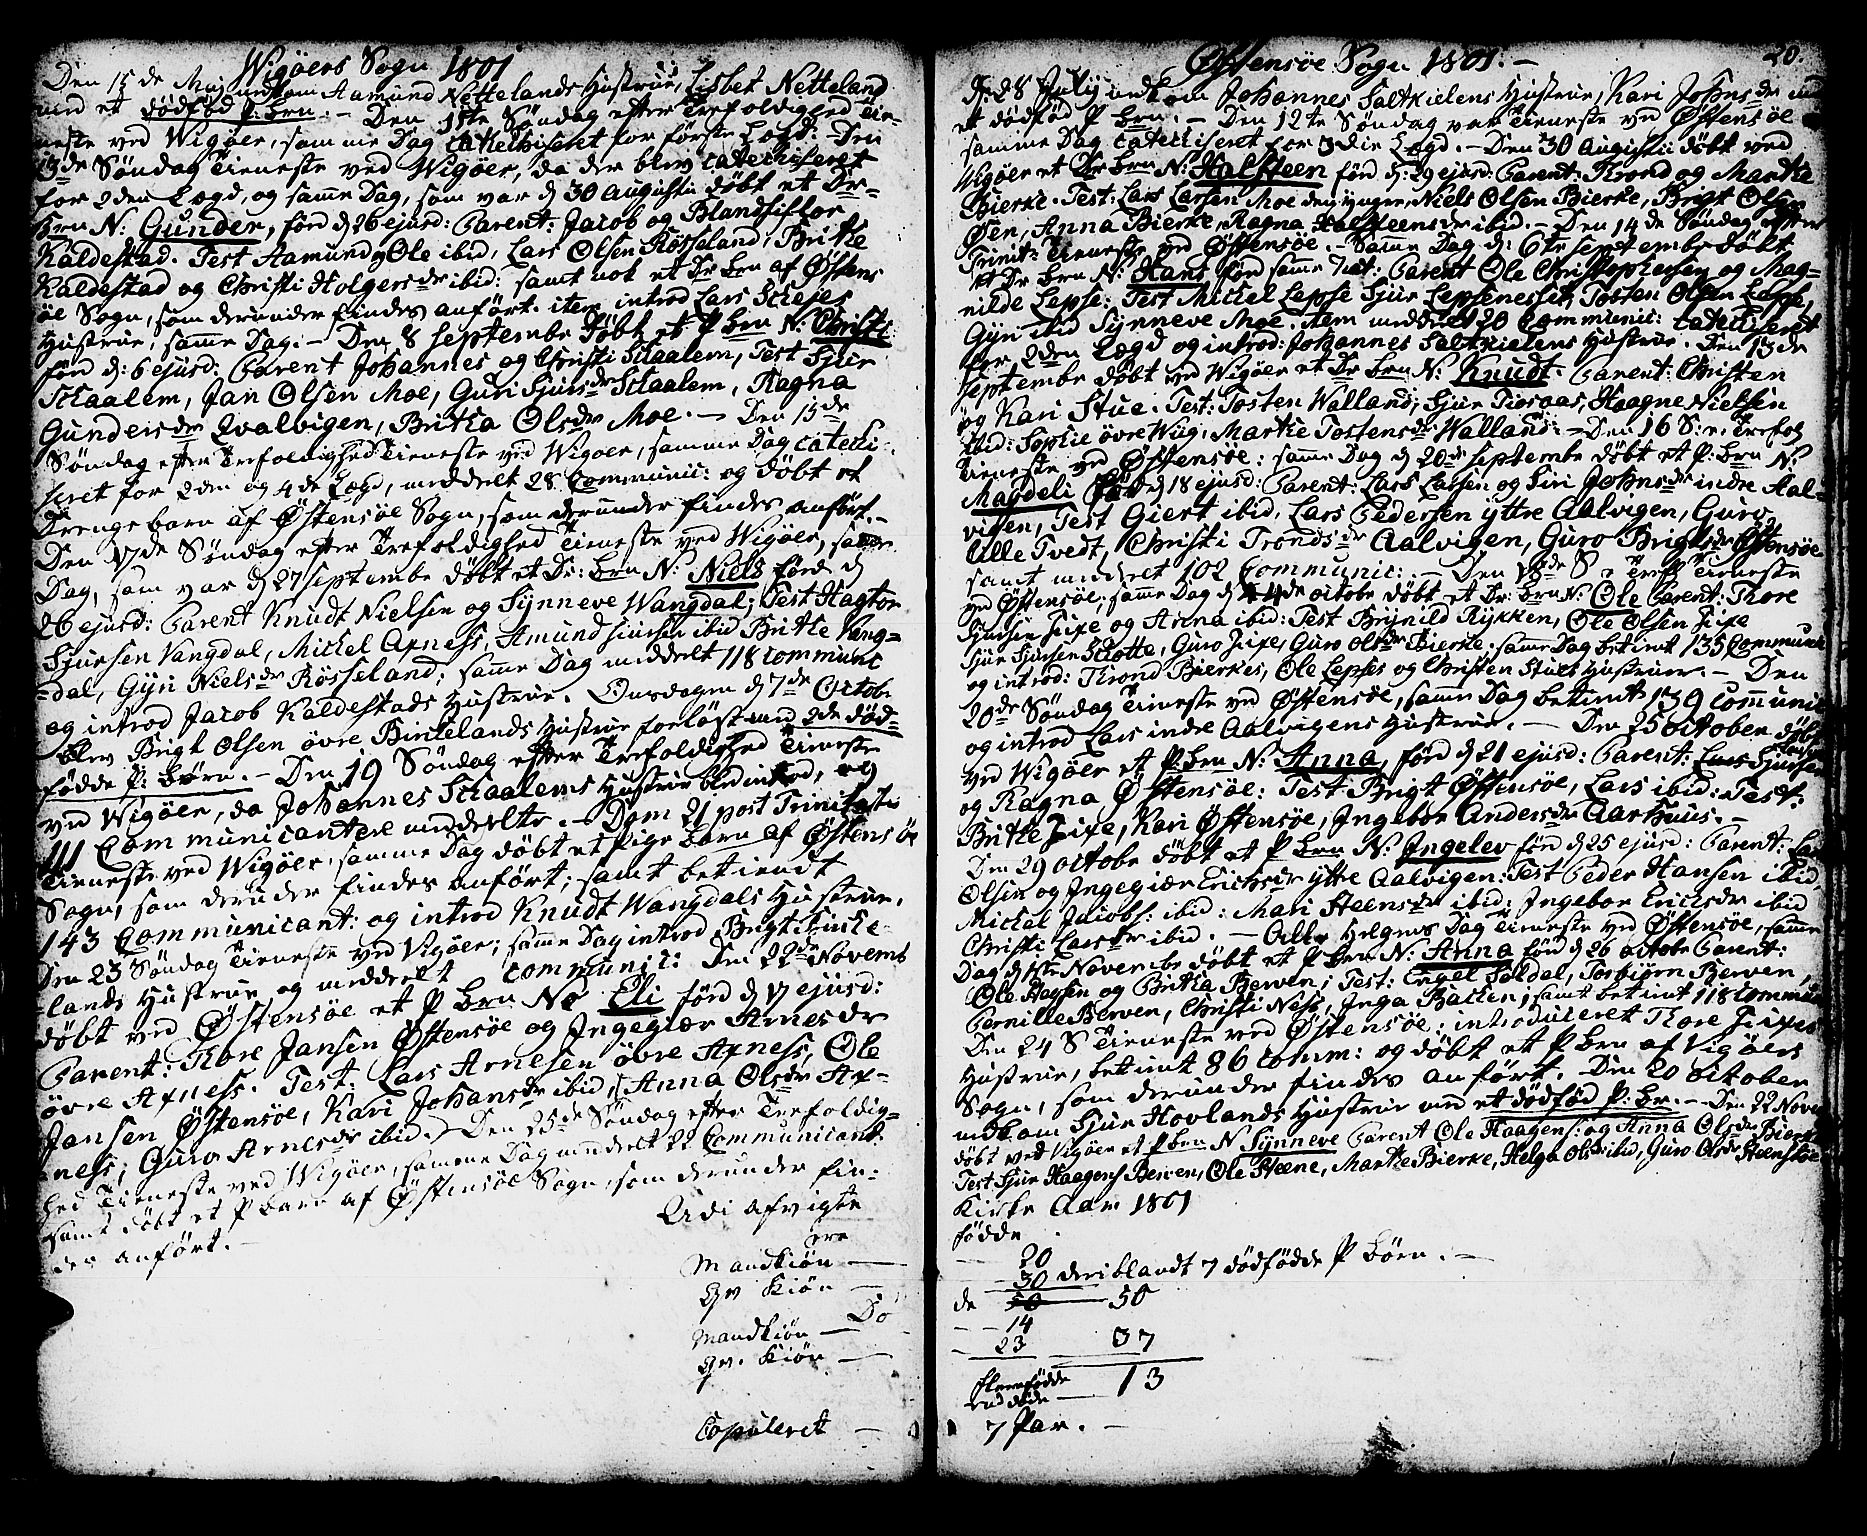 Wigöers Sogn 1801
Den 15de Maj nedkom Aamund Nettelands Hustrue, Lisbet Netteland
med et dödföd P: brn. - Den 11te Söndag efter Trefoldighed Tie-
neste ved Wigöer, samme Dag Catechiseret for förste Lægd: Den
13de Söndag Tieneste ved Wigöer, da der blev Catechiseret
for 2den Lægd, og samme Dag, som var d 30 Augusti döbt et Dr-
brn N: Gunder, förd d 26 ejusd: Parent: Jacob og Blandsiflor
Kaldestad. Test Aamund og Ole ibid, Lars Olsen Rösseland, Brithe
Kaldestad og Christi Holgersdr ibid: samt nok et Dr brn af Östens
öe Sogn, som derunder findes anfört. item introd Lars Skejes
Hustrue, samme Dag. - Den 8 Septembr döbt et P brn N: Christi
förd d: 6 ejusd: Parent Johannes og Christi Skaalem, Test Sjur
Skaalem, Jan Olsen Moe, Guri Sjursdr Skaalem, Ragna
Gundersdr Qvalvigen, Britha Olsdr Moe. - Den 15de
Söndag efter Trefoldighed Tieneste ved Wigöer, samme Dag Catechi-
seret for 2den og 4de Lægd, meddelt 28 Communic: og döbt et
Drengebarn af Östensöe Sogn, som derunder findes anfört. -
Den 17de Söndag efter Trefoldighed Tieneste ved Wigöer, samme
Dag, som var d 27 Septembr döbt et Dr: brn N: Niels förd d
26 ejusd: Parent Knudt Nielsen og Synneve Wangdal; Test Hagtor
Sjursen Vangdal, Mickel Axness, Amund Siursen ibid Brithe Vang=
=dal, Gyri Nielsdr Rösseland; samme Dag meddelt 118 Communic
og introd Jacob Kaldestads Hustrue. Onsdagen d 7de Octobr
blev Brigt Olsen övre Birkelands Hustrue forlöst med 2de död=
födde P: börn. - Den 19 Söndag efter Trefoldighed Tieneste
ved Wigöer, da Johannes Skaalems Hustrue blev introd, og
111 Communicantere meddelte. - Dom 21 post Trinitatis
Tieneste ved Wigöer, samme Dag döbt et Pige barn af Östensöe
Sogn, som derunder findes anfört; samt betient
143 Communicant: og introd Knudt Wangdals Hustrue.
Den 23 Söndag Tieneste ved Vigöer; samme Dag introd Brigt Birke-
lands Hustrue og meddelt Communic: Den 22de Novemb
döbt ved Östensöe et P brn No Eli förd d 17 ejusd:
Parent: Thore Jansen Östensöe og Ingegiær Arnesdr
övre Axness. Test: Lars Arnesen övre Axness, Ole
Jansen Östensöe, Kari Johansdr ibid, Anna Olsdr Ax-
ness; Guro Arnesdr ibid. Den 25de Söndag efter Trefoldig=
hed Tieneste ved Wigöer, samme Dag meddelt 22 Communicant.
samt döbt et P barn af Östensöe Sogn, som derunder fin-
des anfört. -
Udi afvigte
ere
Mandkiön —
Qv Kiön —
Dö
Mandkiön —
Qv. Kiön —
Copuleret —
Östensöe Sogn 1801. - 20.
d: 28 Julij nedkom Johannes Saltkielens Hustrue, Kari Johnsdr med
et dödföd P brn. - Den 12te Söndag var Tieneste ved Östensöe
samme Dag Catechiseret for 3die Lægd. - Den 30 Augusti döbt ved
Wigöer et Dr brn N: Halsteen förd d: 29 ejusd: Parent: Thrond og Marthe
Bierke. Test: Lars Larsen Moe den yngere, Niels Olsen Bierke, Brigt Ols-
Øen, Anna Bierke, Ragna Halsteensdr ibid. - Den 14de Söndag efter
Trinit: Tieneste ved Östensöe. - Samme Dag d: 6te Septembr döbt
et Dr brn N: Hans förd samme Nat: Parent Ole Christophersen og Mag-
nilde Lepse: Test Mickel Lepse Sjur Lepseneset, Tosten Olsen Lepse,
Gyri ibid Synneve Moe. item meddelt 20 Communic: Catechiseret
for 2den Lægd og introd: Johannes Saltkielens Hustrue. Den 13de
Septembr döbt ved Wigöer et Dr brn N: Knudt. Parent: Christen
og Kari Stue. Test: Tosten Walland, Sjur Tiosaas, Haagne Nielsen
ibid: Sophie övre Wiig, Marthe Tostensdr Walland. - Den 16 S: e. Trefol
Tieneste ved Östensöe: samme Dag d 20de Septembr döbt et P: brn N:
Magdeli förd d 18 ejusd: Parent: Lars Larsen og Siri Johnsdr indre Aal-
vigen, Test Giert ibid, Lars Pedersen yttre Aalvigen, Guro
lille Tvedt, Christi Trondsdr Aalvigen, Guro Brigtsdr Östensöe
samt meddelt 102 Communic: - Den 18de S e Tref Tieneste
ved Östensöe, samme Dag d 4de Octobr döbt et Dr: brn N: Ole Parent: Thore
Sjursen Fixe og Anna ibid: Test Brynild Rykken, Ole Olsen Fixe
Sjur Sjursen Skotte, Guro Fixe, Guro Olsdr Bierke; samme Dag betient 135 Communic
og introd: Thrond Bierkes, Ole Lepses og Christen Stues Hustruer. - Den
20de Söndag Tieneste ved Östensöe, samme Dag betient 139 Communic
og introd Lars indre Aalvigens Hustrue. - Den 25 Octobern döbt
ved Wigöer et P: brn N: Anna, förd d 21 ejusd: Parent: Sjursen
og Ragna Östensöe: Test Brigt Östensöe, Lars ibid: Test:
Brithe Fixe, Kari Östensöe, Ingebor Andersdr Aarhuus. -
Den 29 Octobr döbt et P brn N: Ingelev förd d 25 ejusd: Parent:
Olsen og Ingegiær Erichsdr yttre Aalvigen: Test Peder Hansen ibid,
Mickel Jacobs: ibid: Mari Steensdr ibid: Ingebor Ericksdr ibid
Christi Larsdr ibid. - Alle Helgens Dag Tieneste ved Östensöe, samme
Dag d 1te Novembr döbt et P brn N: Anna förd d 26 Octobr Parent:
Ole Hagsen og Britha Berven; Test: Engel Soldal, Torbiörn Berven,
Pernille Berven, Christi Ness, Inga Backen, samt betient 118 Commun
Den 24 S Tieneste ved Östensöe; introduceret Thore Fixes
Hustrue, betient 86 Comm: og döbt et P brn af Vigöers
Sogn, som derunder findes anfört. Den 20 Octobern
nedkom Sjur Hovlands Hustrue med et dödföd P: br. - Den 22 Nove
döbt ved Vigöer et P brn N Synneve Parent Ole Haagens: og Anna Olsdr Bierke
Test Sjur Haagens Berven, Ole Steene, Marthe Bierke, Helga Olsdr ibid, Guro Olsdr Steenstöe
Kirke Aar 1801
födde
20
30 deriblandt 7 dödfödde P börn. -
de 50 50
14
23 37
flerefödde
end döde 13
7 Par. -